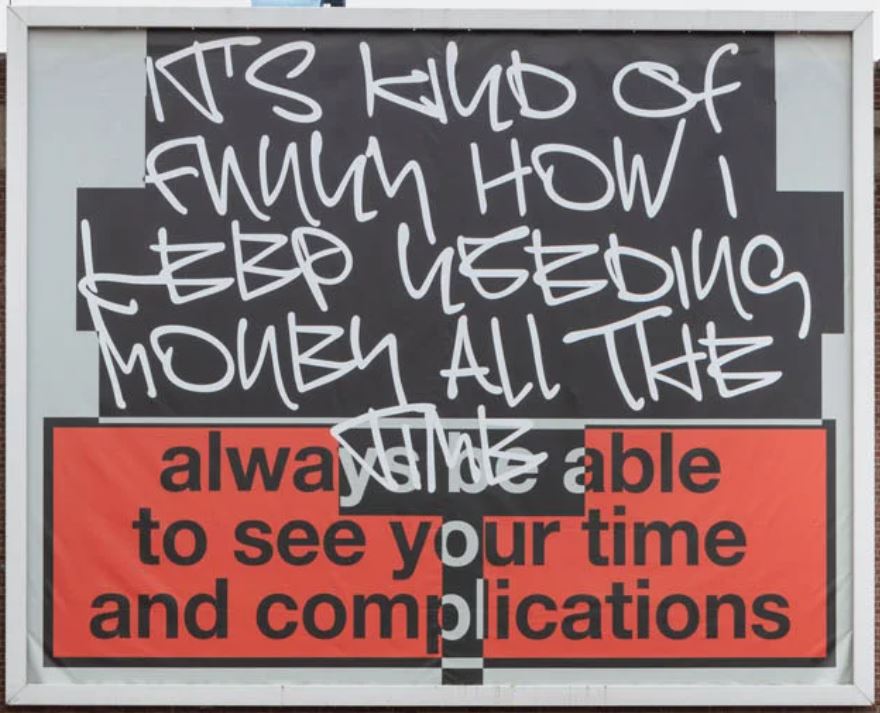 IT'S KIND Of
FUNNY HOW i
KEEP NEEDING
MONEY All THE
TIME
always be able
to see your time
and complications